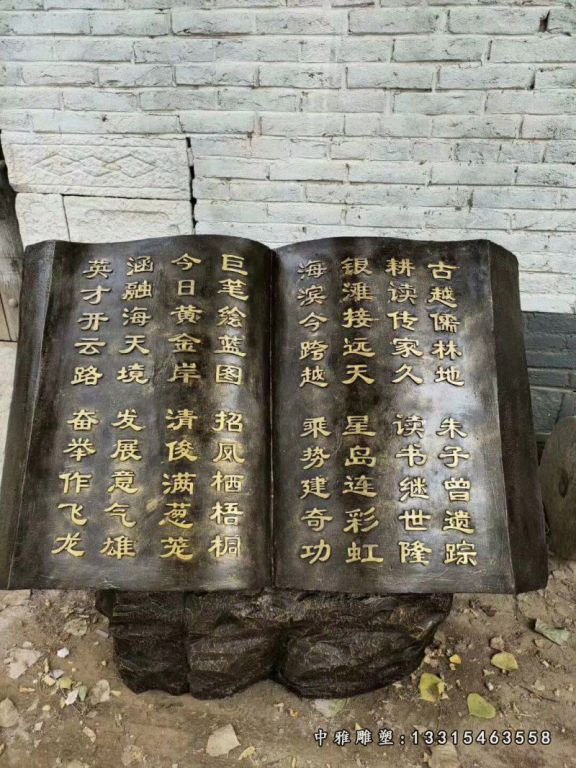 古越儒林地 朱子曾遗踪
耕读传家久 读书继世隆
银滩接远天 星岛连彩虹
海滨今跨越 乘势建奇功
巨笔绘蓝图 招凤栖梧桐
今日黄金岸 清俊满葱茏
涵融海天境 发展意气雄
英才开云路 奋举作飞龙
中雅雕塑:13315463558